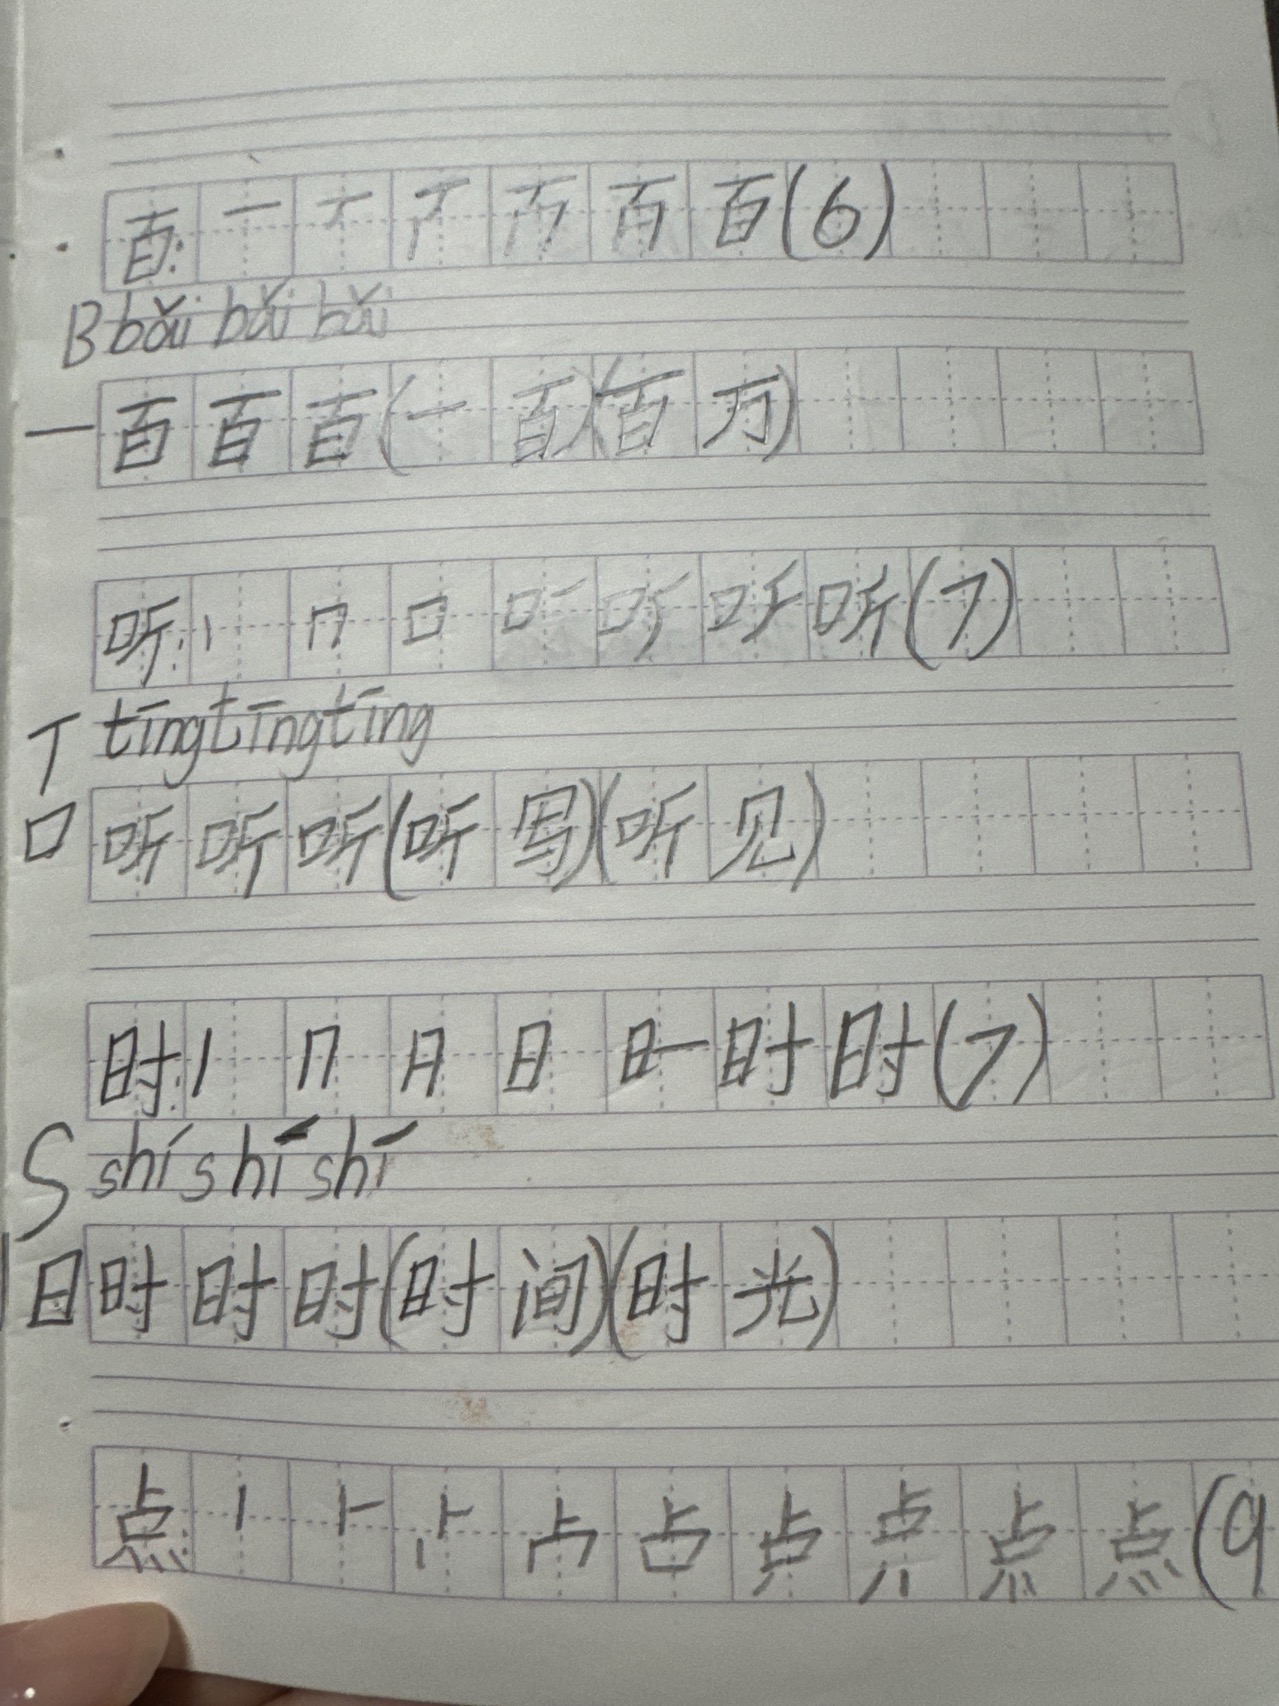 百: 一 丆 丆 百 百 百(6)
B bǎi bǎi bǎi
一 百百百(一百)(百万)
听: 丨 冂 口 叮 听 听 听(7)
T tīng tīng tīng
口 听听听(听写)(听见)
时: 丨 冂 日 日 旦 时 时(7)
S shí shī shī
日 时时时(时间)(时光)
点: 丨 ⺊ ⺊ 占 占 点 点 点 点(9